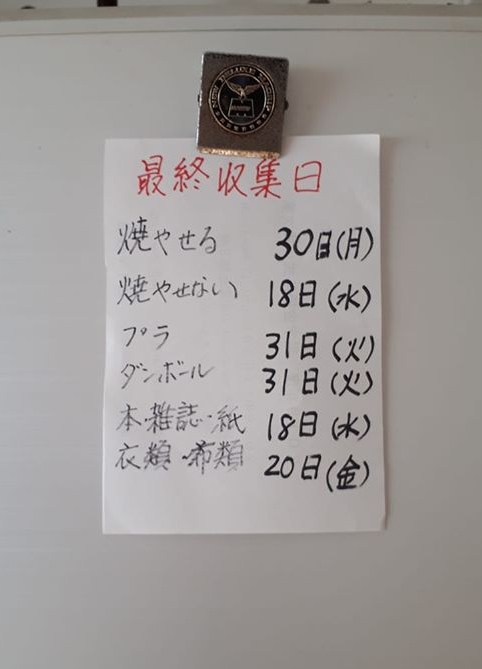 最終収集日
焼やせる 30日(月)
焼やせない 18日(水)
プラ 31日(火)
ダンボール 31日(火)
本・雑誌・紙 18日(水)
衣類・布類 20日(金)